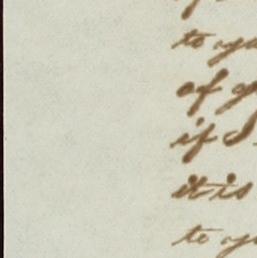 to yo
of y
if I
it is
to yo